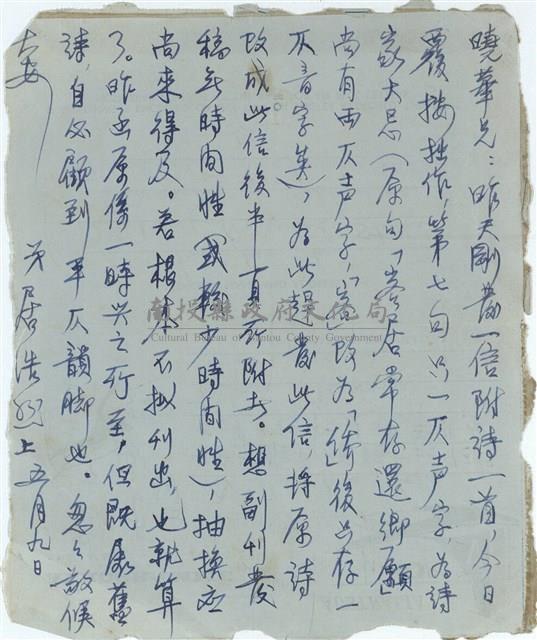 曉華兄：昨天剛發一信附詩一首，今日
覆按拙作，第七句只一仄声字，為詩
家大忌（原句「岩居常存還鄉願」
尚有两仄声字，「岩」改為「僑」後只存一
仄音字矣），為此趕發此信，將原詩
改成此信後半頁所附者。想副刊發
稿無時间性（或較少時间性），抽換应
尚来得及。若根本不拟刊出，也就算
了。昨函原係一時兴之所至，但既属舊
詩，自必顧到平仄韻脚也。匆匆敬候
大安
弟居浩然上五月九日
南投縣政府文化局
Cultural Bureau of Nantou County Government